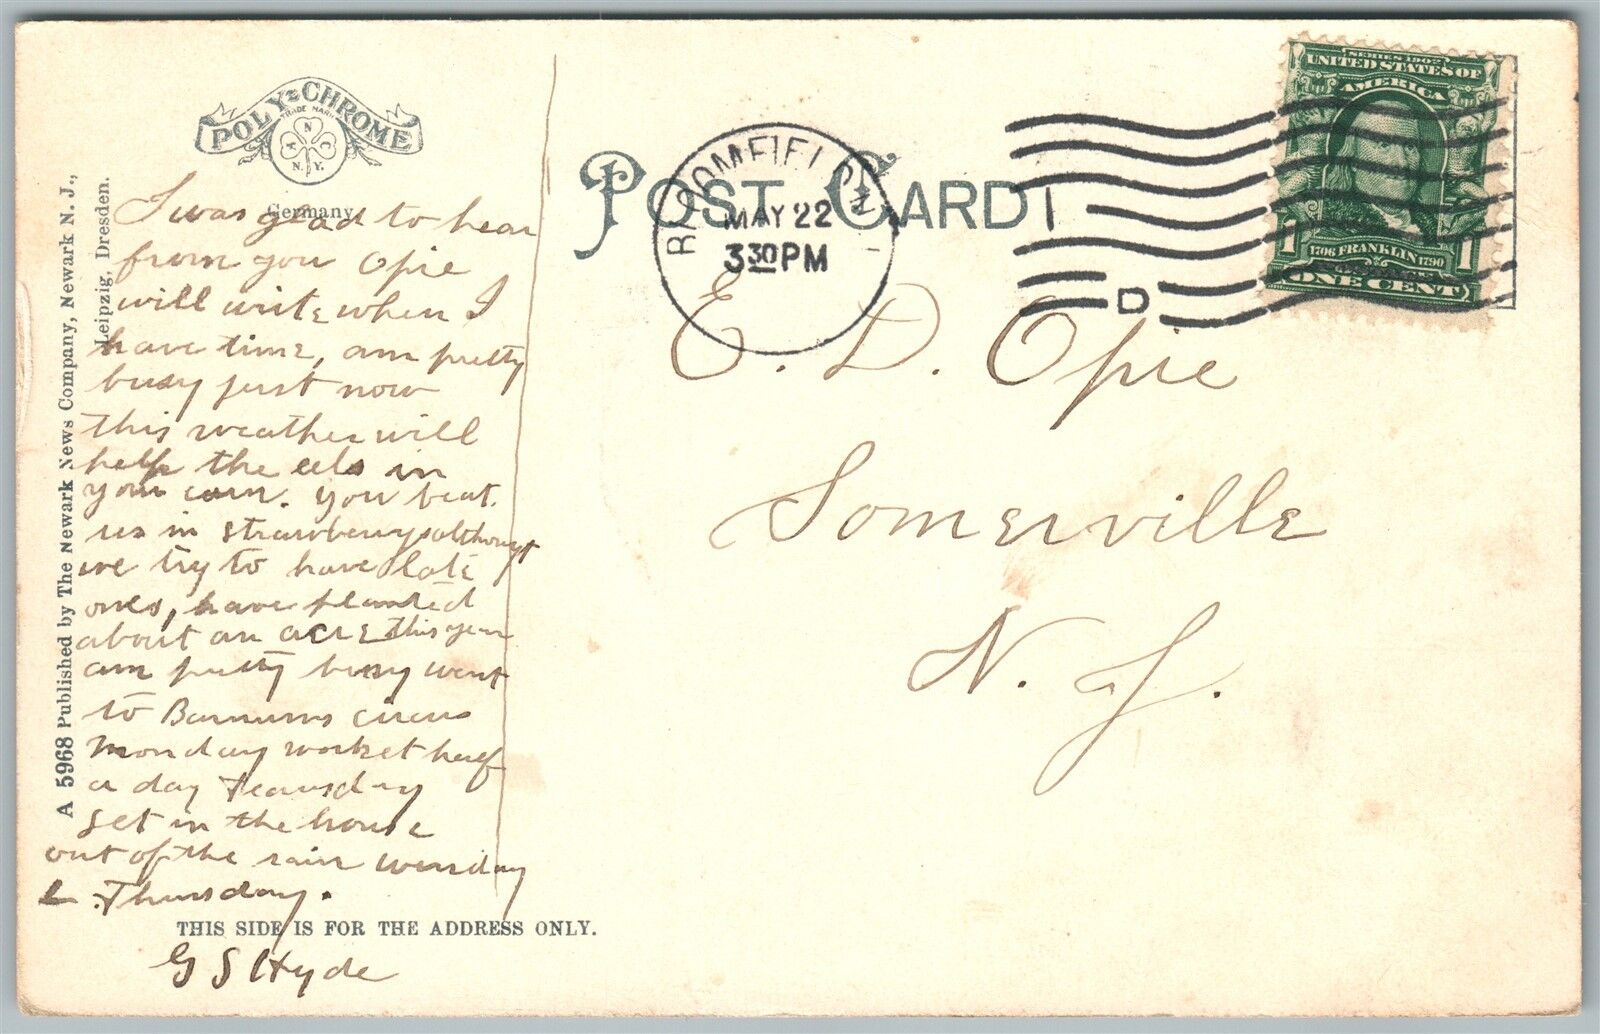 POLY-CHROME
TRADE MARK
A N C
N.Y.
Germany
A 5968 Published by The Newark News Company, Newark N. J.,
Leipzig, Dresden.
POST CARD
BLOOMFIELD N.J.
MAY 22
3 30 PM
D
SERIES 1902
UNITED STATES OF
AMERICA
1 1
1706 FRANKLIN 1790
ONE CENT
I was glad to hear
from you Opie
will write when I
have time, am pretty
busy just now
this weather will
help the eels in
your corn. you beat
us in strawberrys although
we try to have late
ones, have planted
about an acre this year
am pretty busy went
to Barnums circus
monday worket half
a day
set in the house
out of the rain
Thursday.
G S Hyde
E. D. Opie
Somerville
N. J.
THIS SIDE IS FOR THE ADDRESS ONLY.